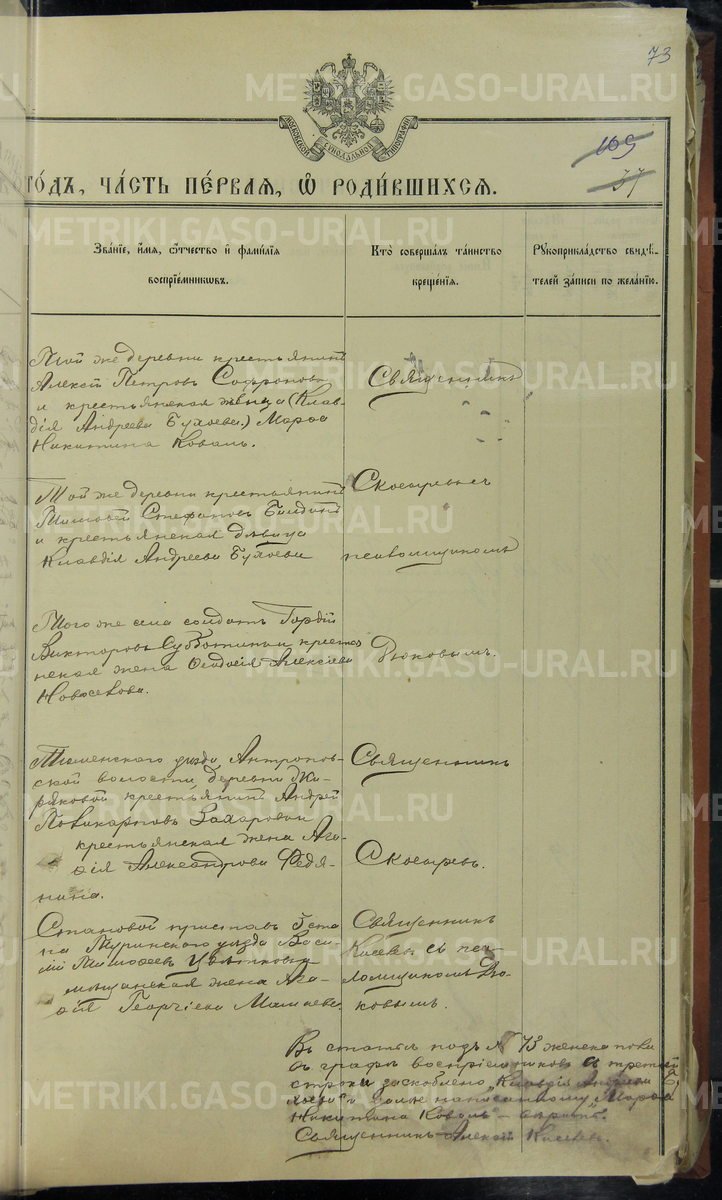 73
МОСКОВСКОЙ СѴНОДАЛЬНОЙ ТИПОГРАФІИ
109
37
ГО́ДЪ, ЧА́СТЬ ПЕ́РВАЯ, Ѡ҆ РОДИ́ВШИХСЯ.
Зва́нїе, и҆́мя, ѻ҆́тчество и҆ фами́лїя
воспрїе́мниковъ.
Кто̀ соверша́лъ та́инство
креще́нїя.
Рꙋкоприкла́дство свидѣ́-
телей за́писи по жела́нїю.
Той же деревни крестьянинъ
Алексѣй Петровъ Софроновъ
и крестьянская жена (Клав-
дія Андреева Бухаева.) Марѳа
Никитина Коваль.
Священникъ
Той же деревни крестьянинъ
Стефановъ
и крестьянская дѣвица
Клавдія Андреева Бухаева
Скосаревъ съ
псаломщикомъ
Того же села солдатъ Гордій
Викторовъ Субботинъ и кресть
янская жена Алексѣева
Новоселова.
Дюковымъ.
Тюменскаго уѣзда Антропов-
ской волости деревни Жи-
ряковой крестьянинъ Андрей
Поликарповъ Захаровъ и
крестьянская жена Ага-
ѳія Александрова Федя-
нина.
Священникъ
Скосаревъ.
Становой приставъ 3 ста
на Туринскаго уѣзда Васи
лій Тимофеевъ
мѣщанская жена Ага-
ѳія Георгіева Мамаева.
Священникъ
Киселевъ съ пса-
ломщикомъ Дю-
ковымъ.
Въ статьѣ подъ № 73 женска пола
въ графѣ воспріемниковъ въ третьей
строкѣ заскоблено „Клавдія Андреева Бу
хаева" и далѣе написанному „Марѳа
Никитина Коваль" – вѣрить.
Священникъ Алексѣй Киселевъ.
METRIKI.GASO-URAL.RU